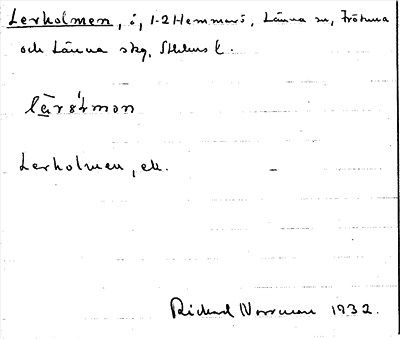 Lerholmen, i, 1-2 Hemmarö, Länna sn, Frötuna
och Länna skg, Sthlms l.
Lerholmen, ek.
Richard Norrman 1932.